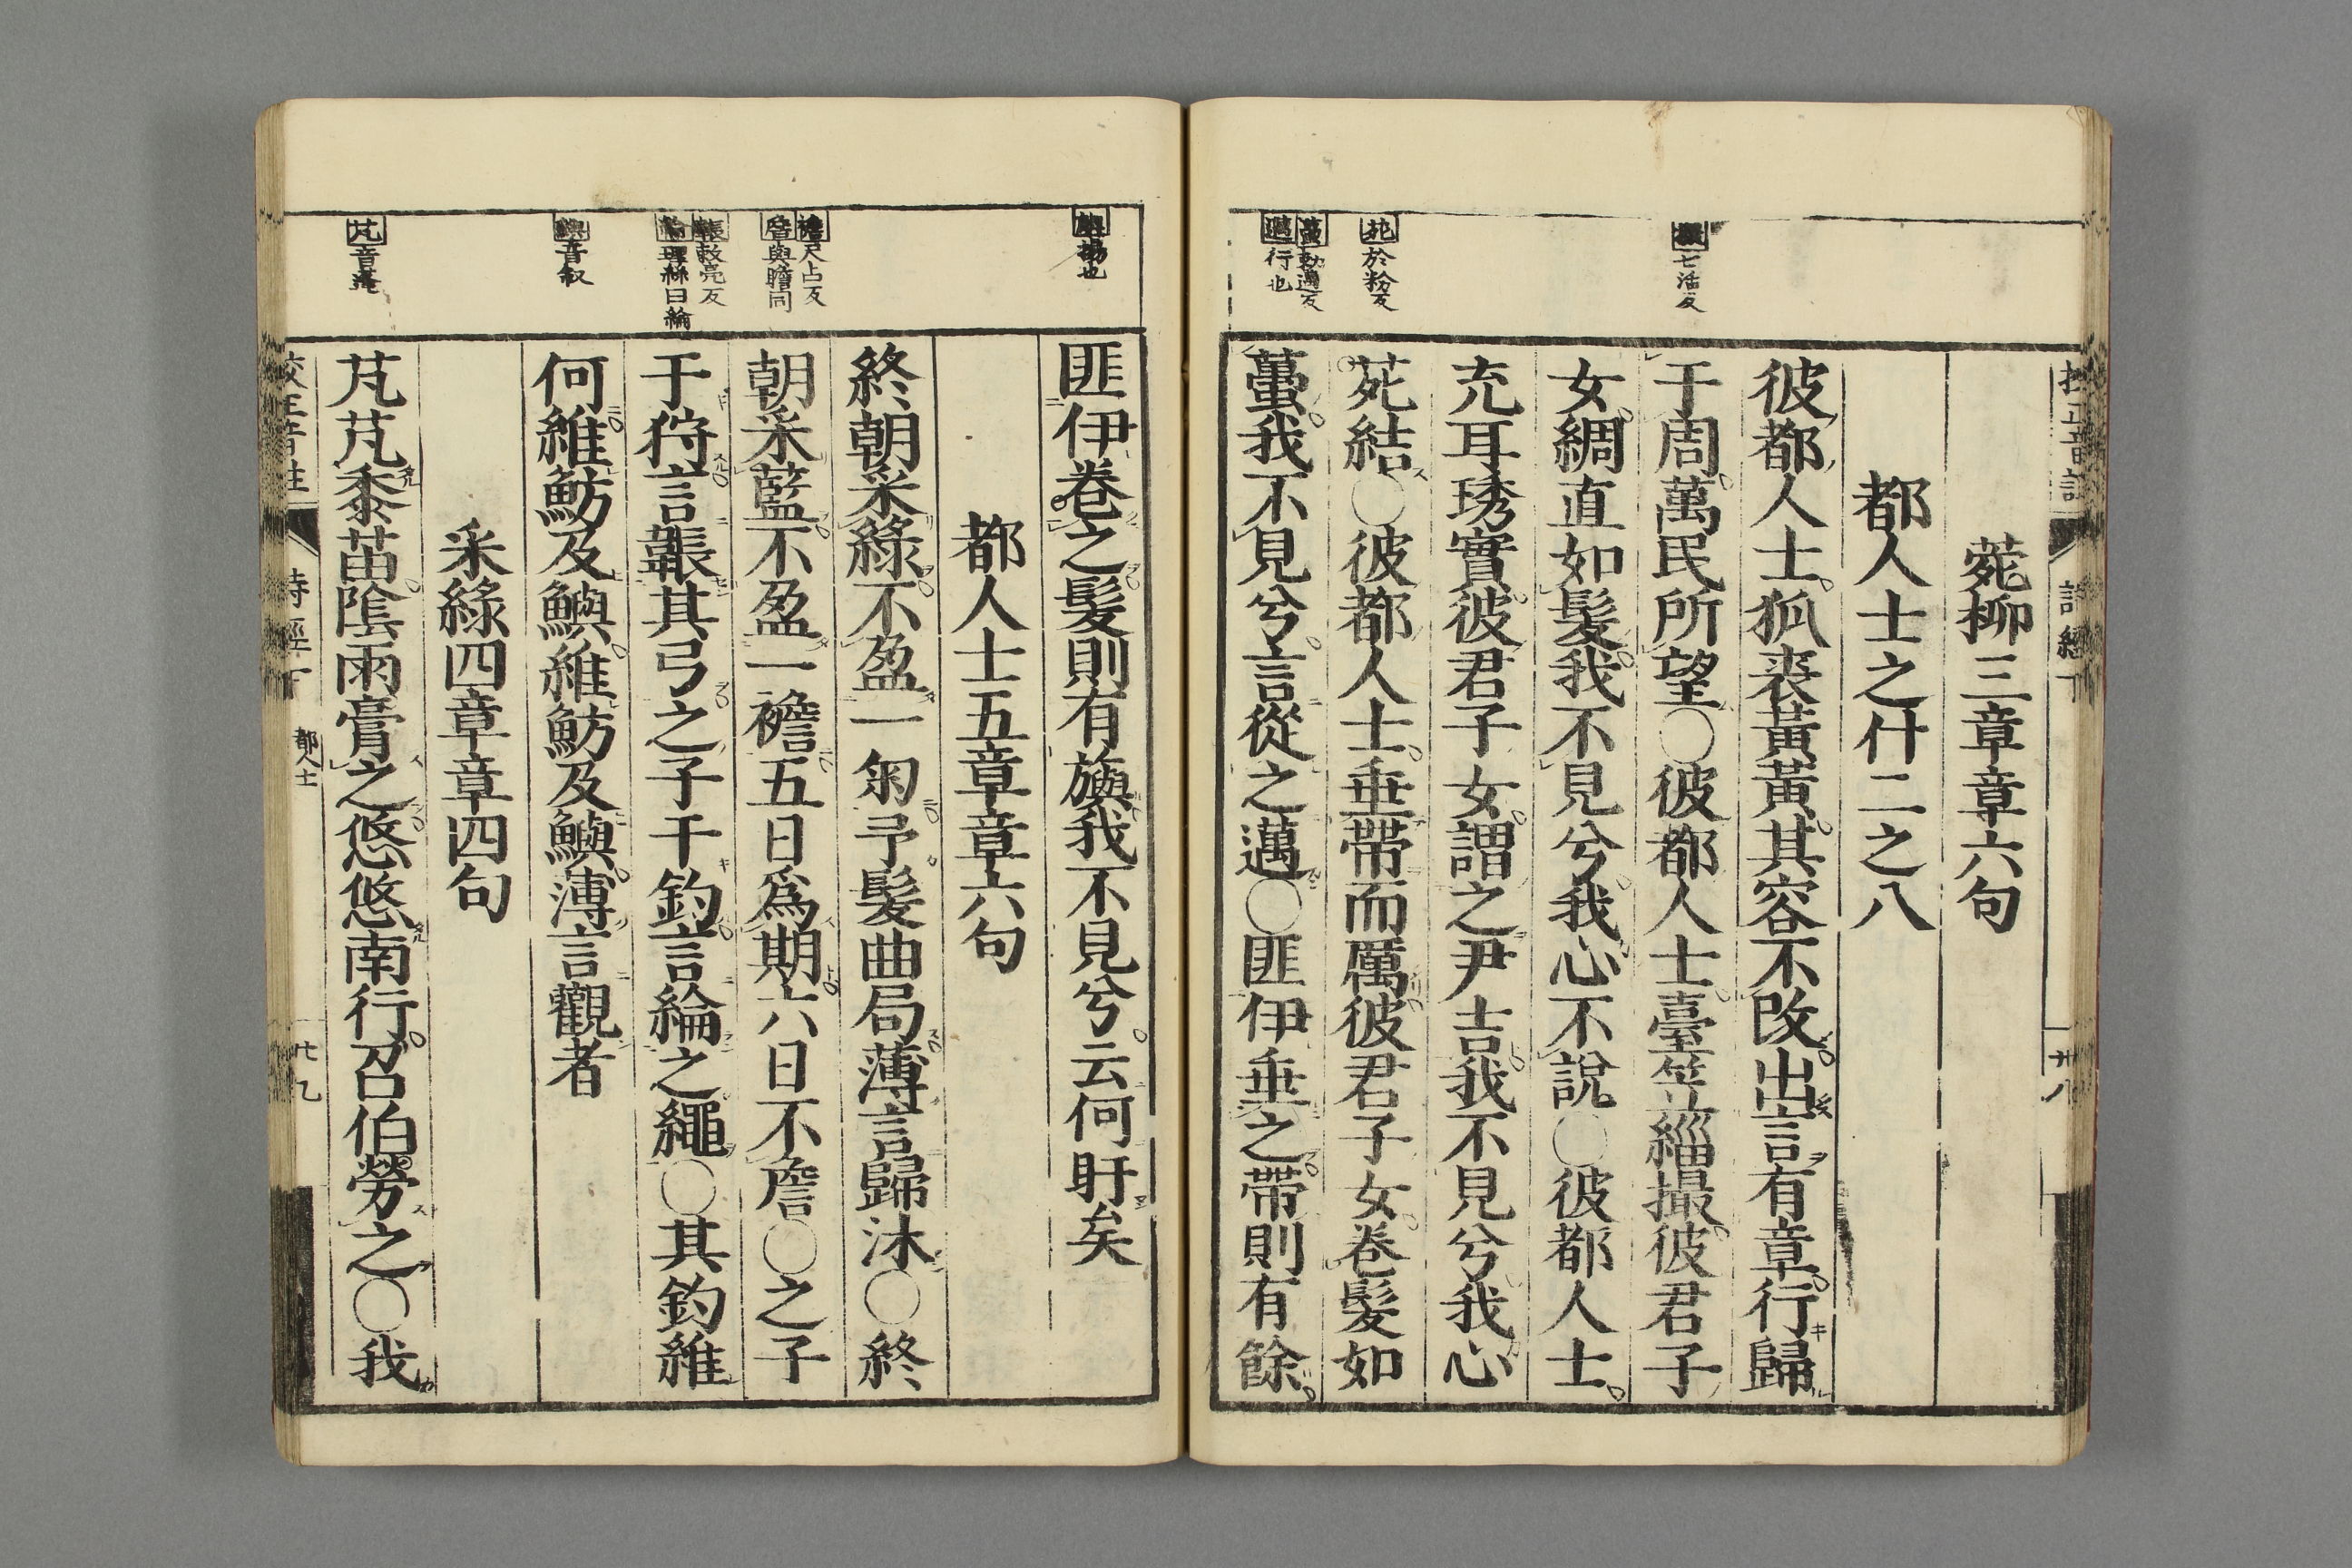 撮七活反
苑於粉反
蠆勑邁反
邁行也
菀柳三章章六句
都人士之什二之八
彼都人士狐裘黃黃其容不改出言有章行歸
于周萬民所望○彼都人士臺笠緇撮彼君子
女綢直如髮我不見兮我心不說○彼都人士
充耳琇實彼君子女謂之尹吉我不見兮我心
苑結○彼都人士垂帶而厲彼君子女卷髮如
蠆我不見兮言從之邁○匪伊垂之帶則有餘
旟揚也
襜尺占反
詹與瞻同
韔敕亮反
綸理絲曰綸
鱮音叙
芃音蓬
匪伊卷之髮則有旟我不見兮云何盱矣
都人士五章章六句
終朝采綠不盈一匊予髮曲局薄言歸沐○終
朝采藍不盈一襜五日爲期六日不詹○之子
于狩言韔其弓之子于釣言綸之繩○其釣維
何維魴及鱮維魴及鱮薄言觀者
采綠四章章四句
芃芃黍苗陰雨膏之悠悠南行召伯勞之○我
都人士